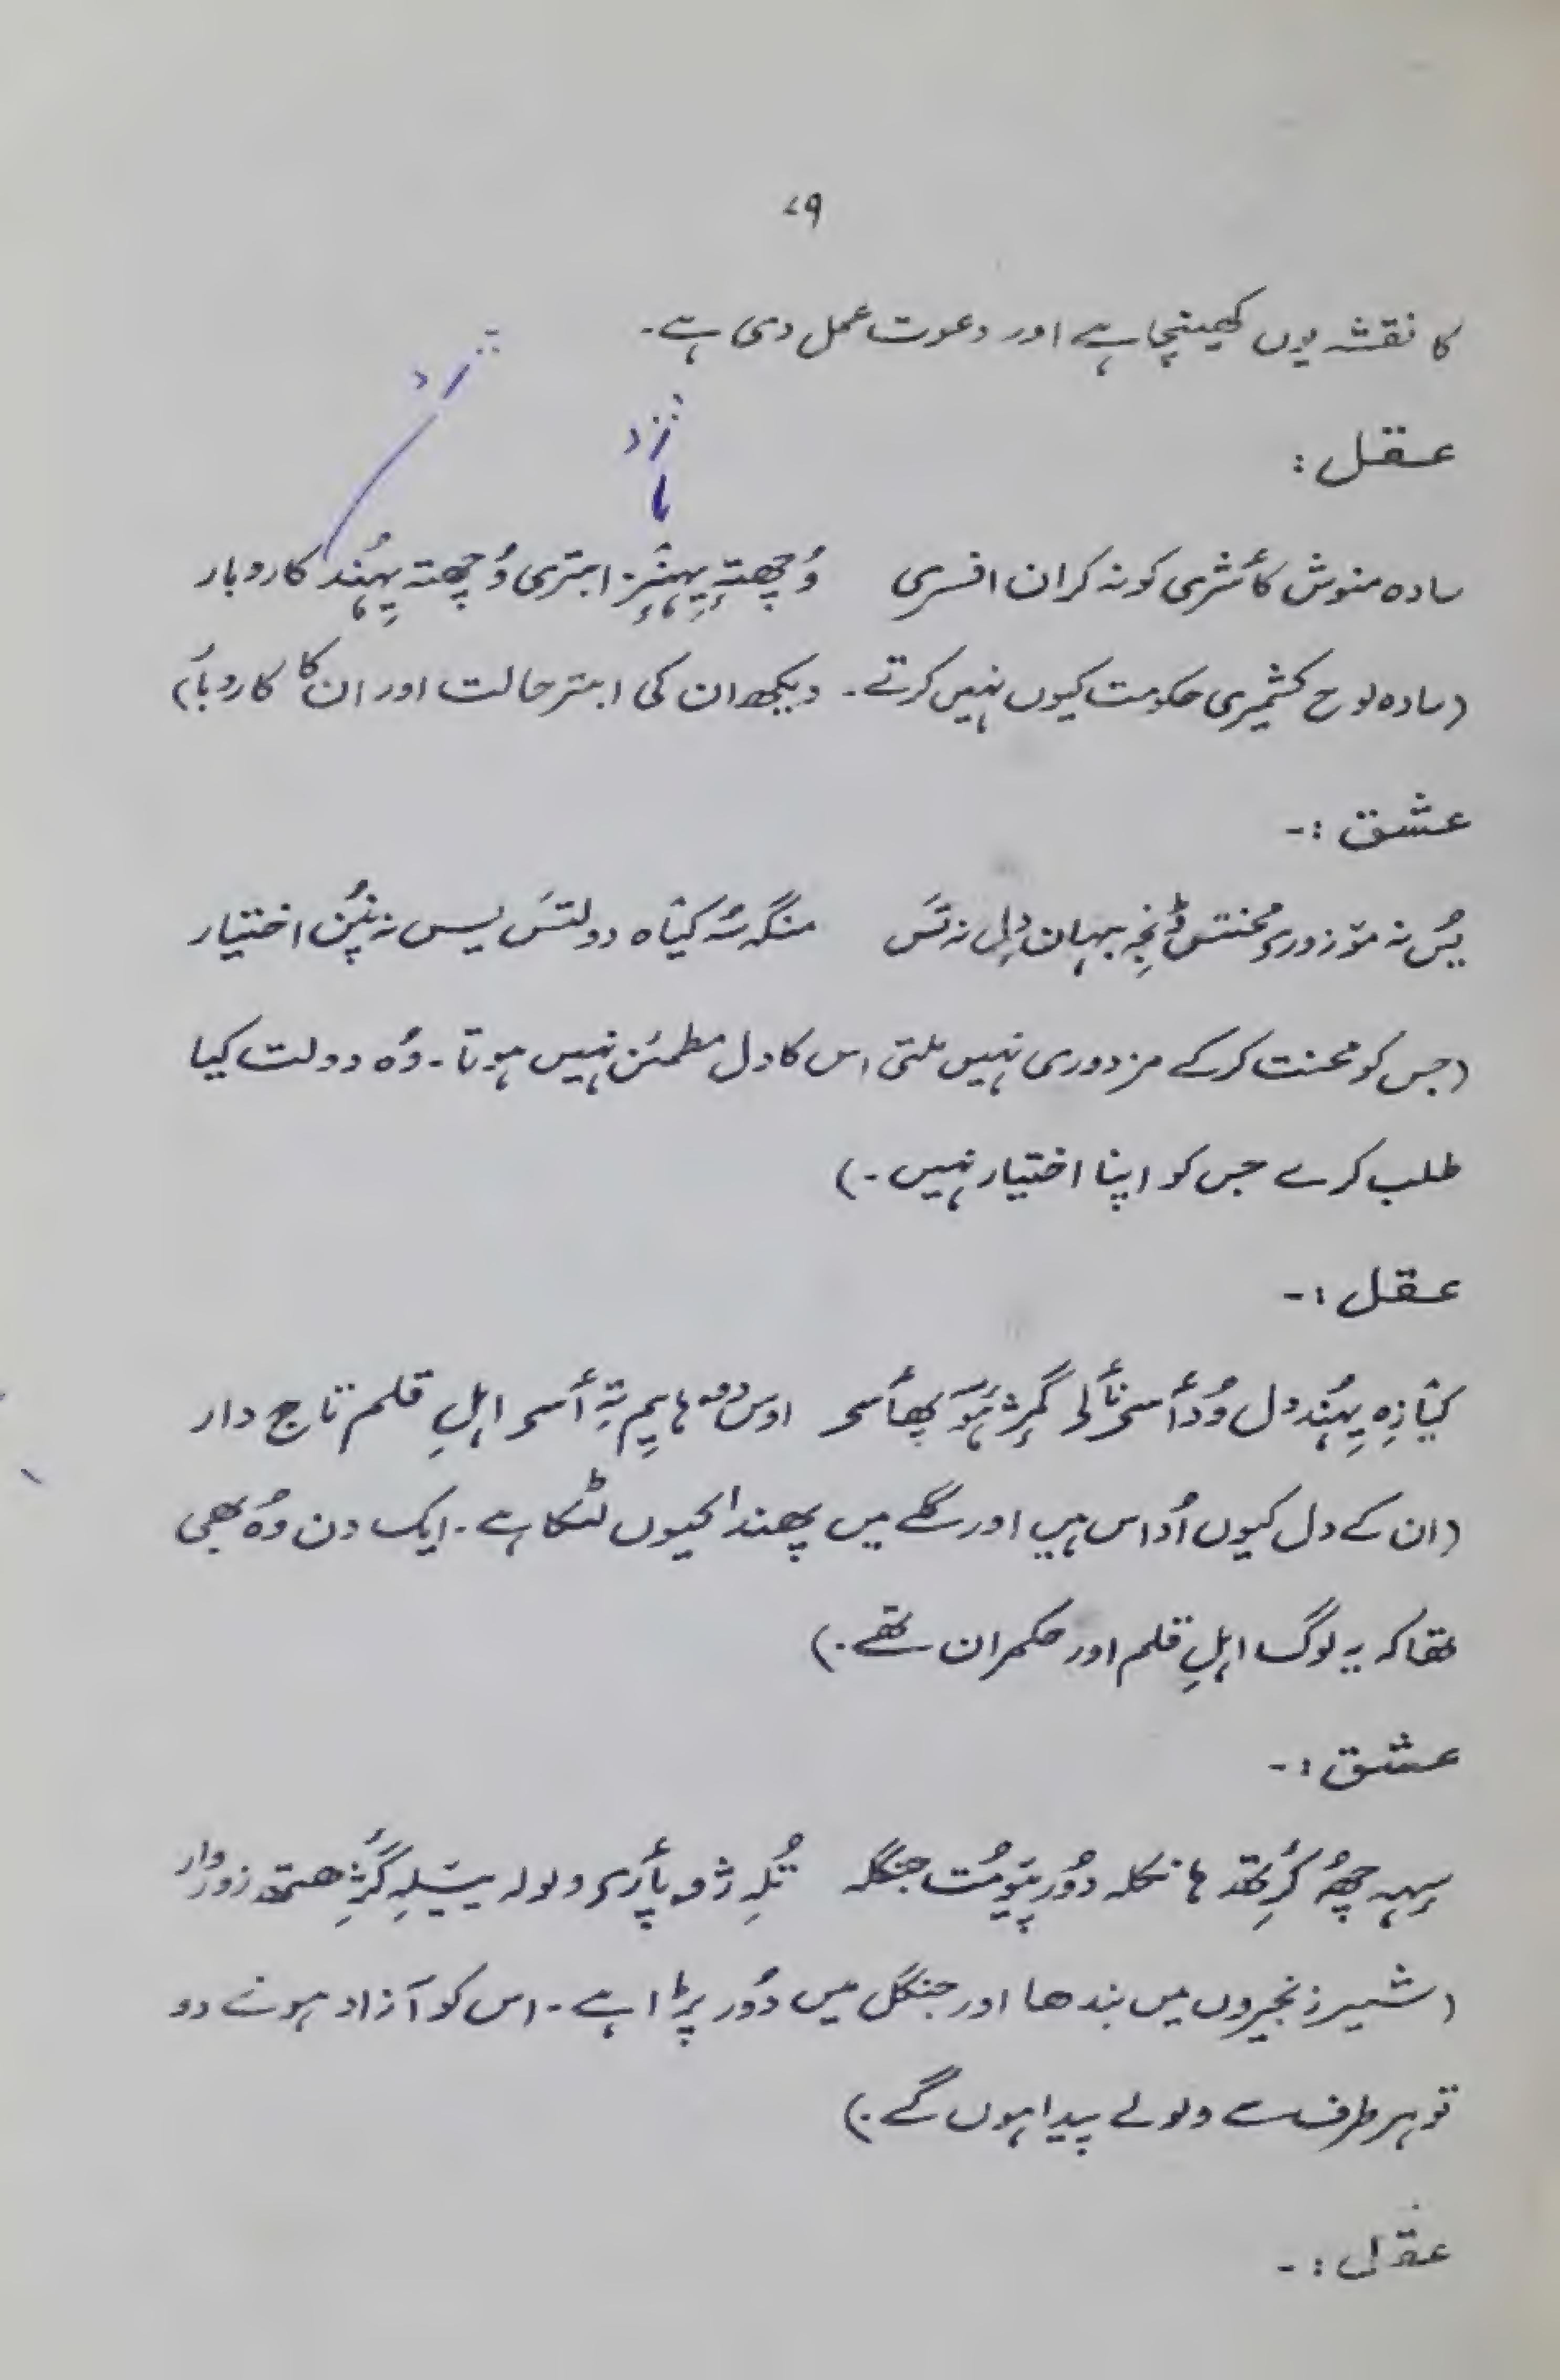 ۷۹
کا نقشہ یوں کھینچا ہے اور دعوت عمل دی ہے۔
عقل :
سادہ منوش کأشری کونہ کران افسری وُچھتہٕ پہنٛز ابتری وُچھتہ پہُند کاروبار
(سادہ لوح کشمیری حکومت کیوں نہیں کرتے۔ دیکھ ان کی ابتر حالت اور ان کا کاروبار)
عشق :-
یُس نہ مۆزورۍ محنتس نہ تَس منگہ سُہ کیٛاہ دولتَس یس نہ پنُن اختیار
(جس کو محنت کرکے مزدوری نہیں ملتی اس کا دل مطمئن نہیں ہوتا۔ وُہ دولت کیا
طلب کرے جس کو اپنا اختیار نہیں۔)
عقل :-
کیٛازِہ پہُند دل تہِ أسۍ اہلِ قلم تاج دار
(ان کے دل کیوں اُداس ہیں اور گلے میں پھندا کیوں لٹکا ہے۔ ایک دن وُہ بھی
تھا کہ یہ لوگ اہلِ قلم اور حکمران تھے۔)
عشق :-
سہہ چھُ کُرِتھ ہانکلہ دُور پیومُت جنگلہ تُلہِ ژو پأرۍ ولولہ زوردار
(شیر زنجیروں میں بندھا اور جنگل میں دُور پڑا ہے۔ اس کو آزاد ہونے دو
تو ہر طرف سے ولولے پیدا ہوں گے۔)
عقل :-